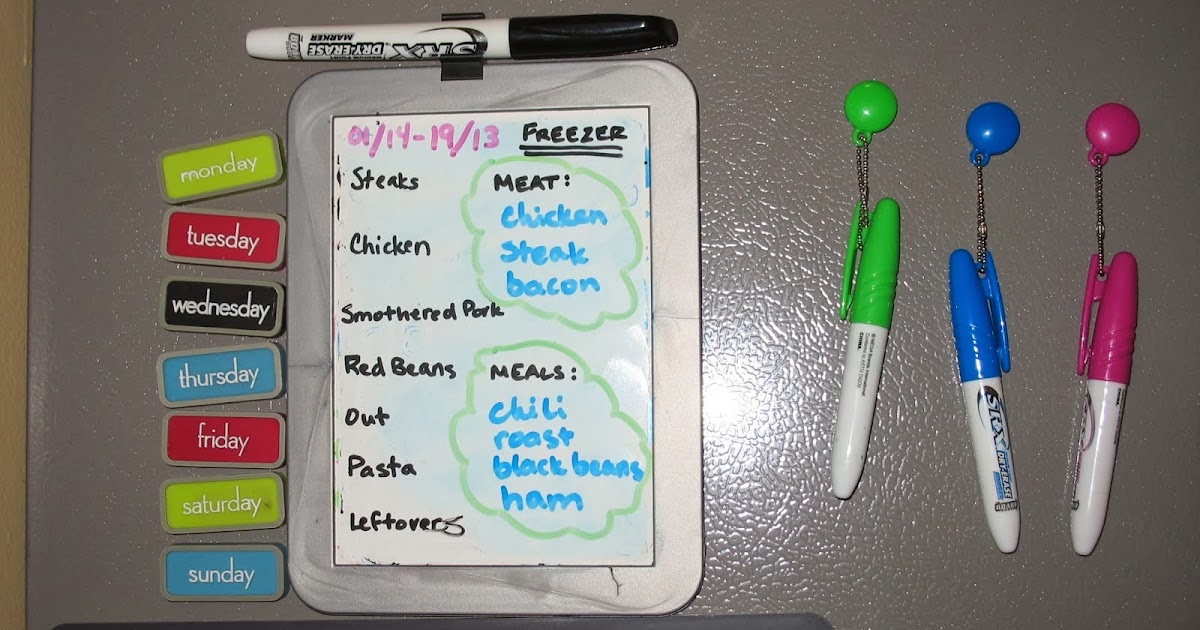 SRX
DRY-ERASE
MARKER
01/14-19/13 FREEZER
monday
Steaks
MEAT:
chicken
steak
bacon
tuesday
Chicken
wednesday
Smothered Pork
thursday
Red Beans
MEALS:
chili
roast
black beans
ham
friday
Out
saturday
Pasta
sunday
Leftovers
CHINA
SRX
DRY-ERASE